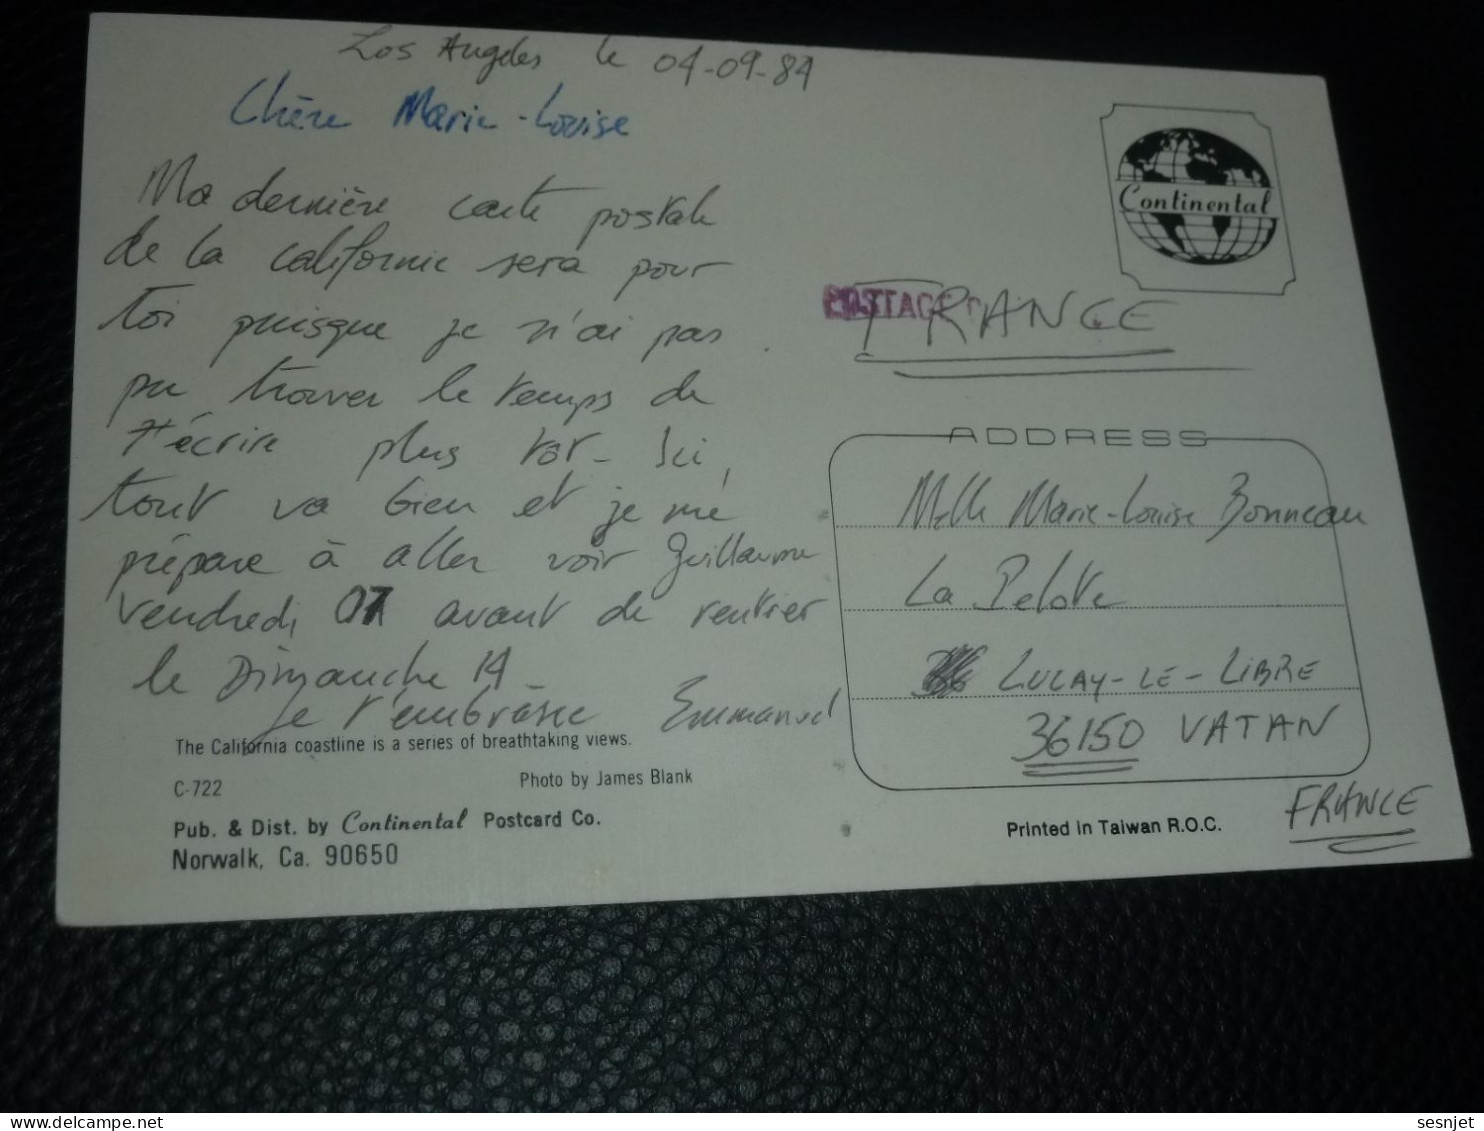 Los Angeles le 04-09-84
Chère Marie-Louise
Ma dernière carte postale
de la californie sera pour
toi puisque je n'ai pas
pu trouver le temps de
t'écrire plus tôt - Ici,
tout va bien et je me
prépare à aller voir Guillaume
vendredi 07 avant de rentrer
le Dimanche 14
Je t'embrasse Emmanuel
The California coastline is a series of breathtaking views.
C-722 Photo by James Blank
Pub. & Dist. by Continental Postcard Co.
Norwalk, Ca. 90650
Continental
POSTAGE
FRANCE
ADDRESS
Melle Marie-Louise Bonneau
La Pelote
LUCAY-LE-LIBRE
36150 VATAN
FRANCE
Printed in Taiwan R.O.C.
www.delcampe.net
sesnjet